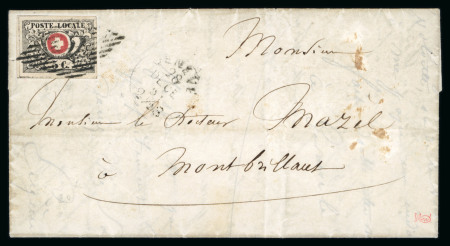 POSTE LOCALE
Monsieur
Monsieur le Docteur Mazel
à Montbrillant